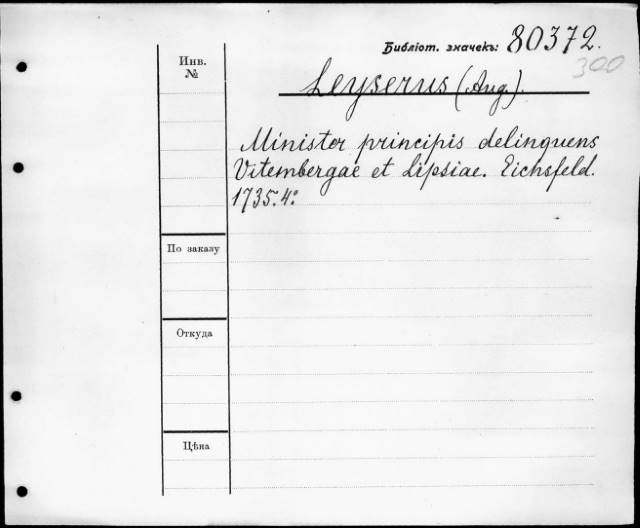 Библіот. значекъ: 80372.
300
Инв.
№
Leyserus (Aug).
Minister principis delinquens
Vitembergae et Lipsiae. Eichsfeld.
1735.4º
По заказу
Откуда
Цѣна